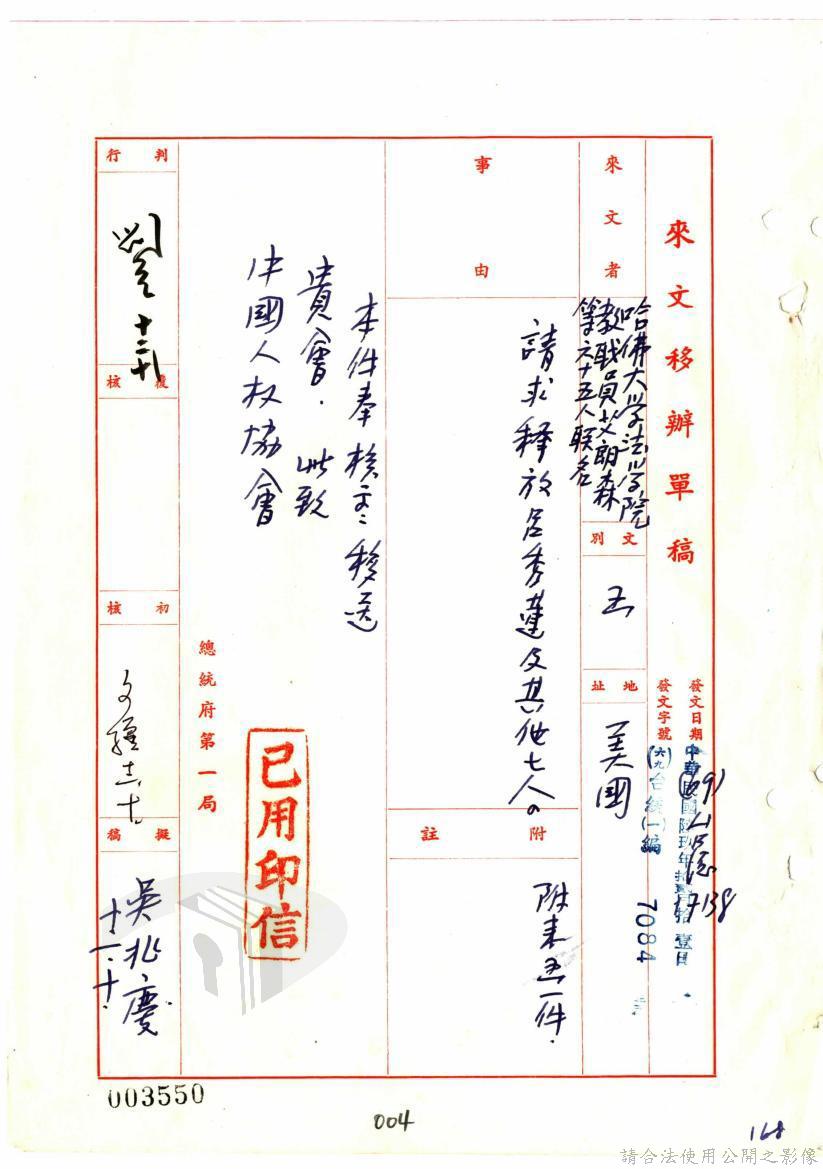 來文移辦單稿
發文日期
中華民國陸玖年拾貳月拾壹日
發文字號
(六九)台統(一)編 7084
來文者
哈佛大学法学院
教職員艾朗森
等六十五人联名
文別
地址
美國
事由
請求釋放呂秀蓮及其他七人。
附註
本件奉核交移送
貴會. 此致
中國人权協會
總統府第一局
已用印信
判行
覆核
初核
擬稿
吳兆慶
十二.十.
003550
004
168
請合法使用公開之影像